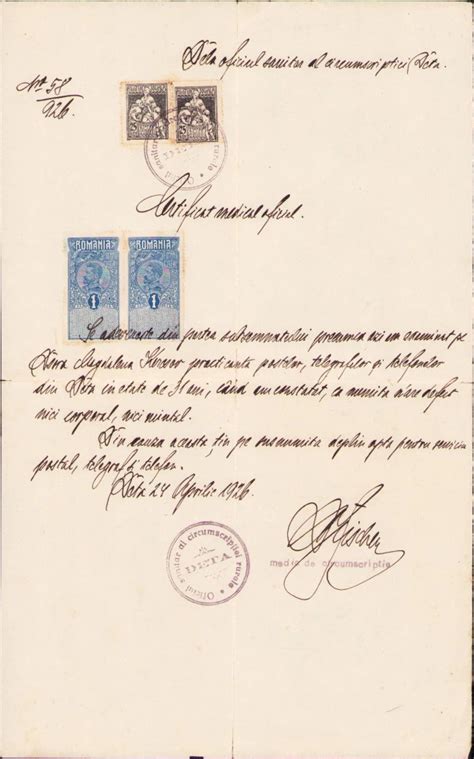 Dela oficiul sanitar al circumscripției Deta.
No 58
926.
Certificat medical oficial.
ROMANIA ROMANIA
1 1
Se adeverește din partea subsemnatului precumca azi am examinat pe
Dșra Magdalena practicanta poștelor, telegrafelor și telefoanelor
din Deta in etate de ani, când am constatat, ca numita n'are defect
nici corporal, nici mintal.
Din cauza aceasta, țin pe susnumita deplin apta pentru serviciu
postal, telegraf și telefon.
Deta 24 Aprilie 1926.
Fischer
medic de circumscriptie
Oficiul sanitar al circumscripției rurale
DETA